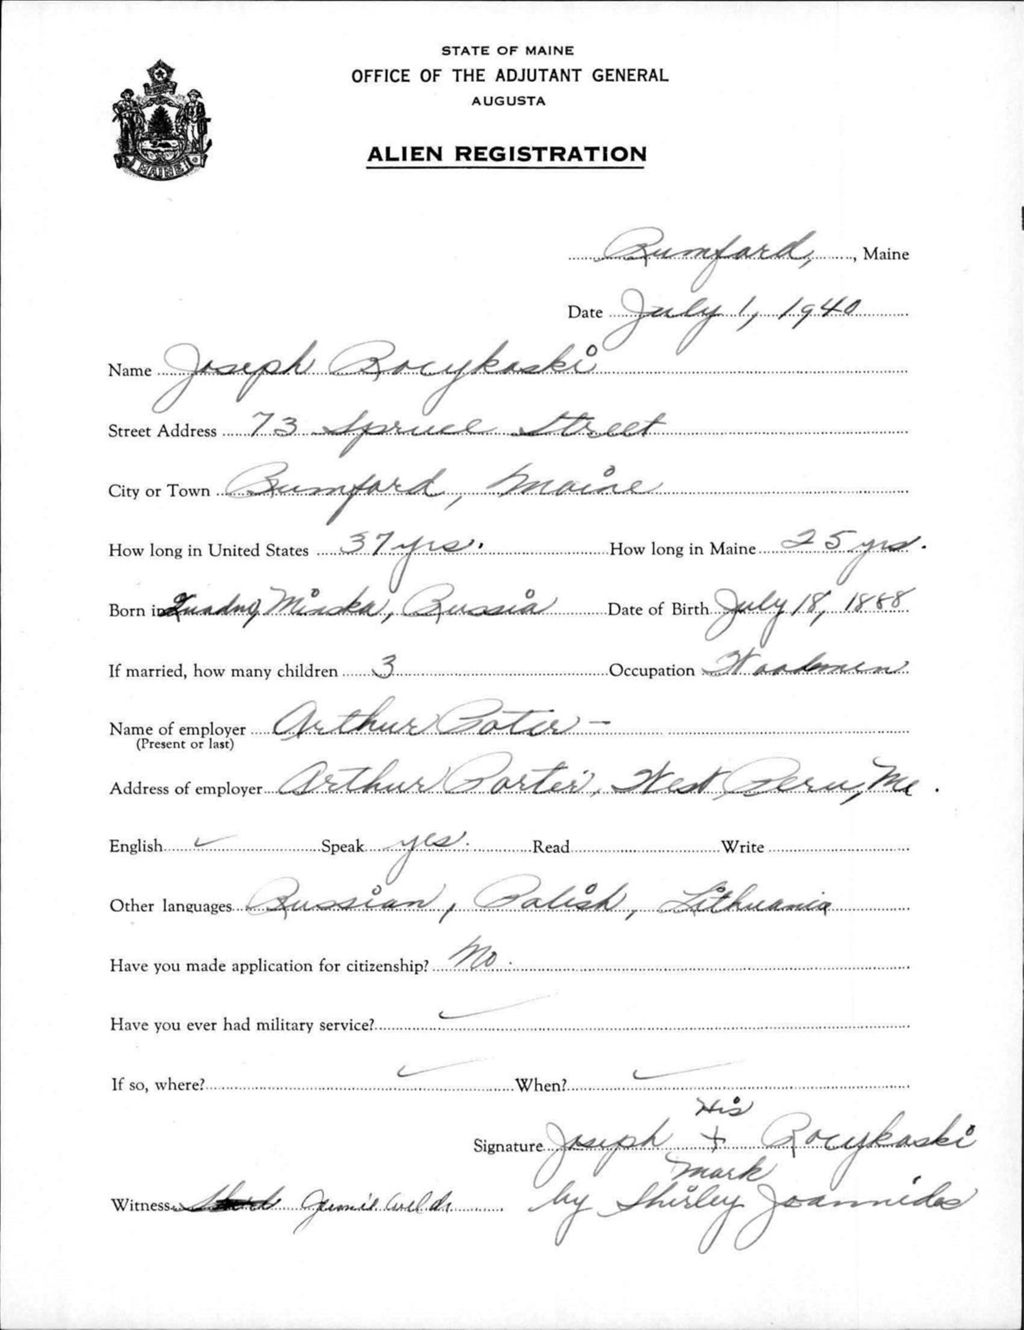 STATE OF MAINE
OFFICE OF THE ADJUTANT GENERAL
AUGUSTA
ALIEN REGISTRATION
MAINE
Rumford, , Maine
Date July 1, 1940
Name Joseph Rocykoski
Street Address 73 Spruce Street
City or Town Rumford, Maine
How long in United States 37 yrs. How long in Maine 25 yrs.
Born in Minska, Russia Date of Birth July 18, 1888
If married, how many children 3 Occupation Woodmen
Name of employer Arthur Poter -
(Present or last)
Address of employer Arthur Porter, West Peru, Me.
English ✓ Speak yes. Read Write
Other languages Russian, Polish, Lithuania
Have you made application for citizenship? No.
Have you ever had military service? ✓
If so, where? ✓ When? ✓
His
Signature Joseph + Rocykoski
Mark
Witness by Shirley Joannides